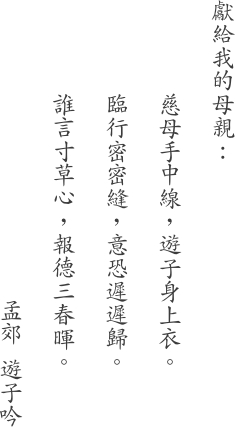 獻給我的母親：
慈母手中線，遊子身上衣。
臨行密密縫，意恐遲遲歸。
誰言寸草心，報德三春暉。
孟郊 遊子吟